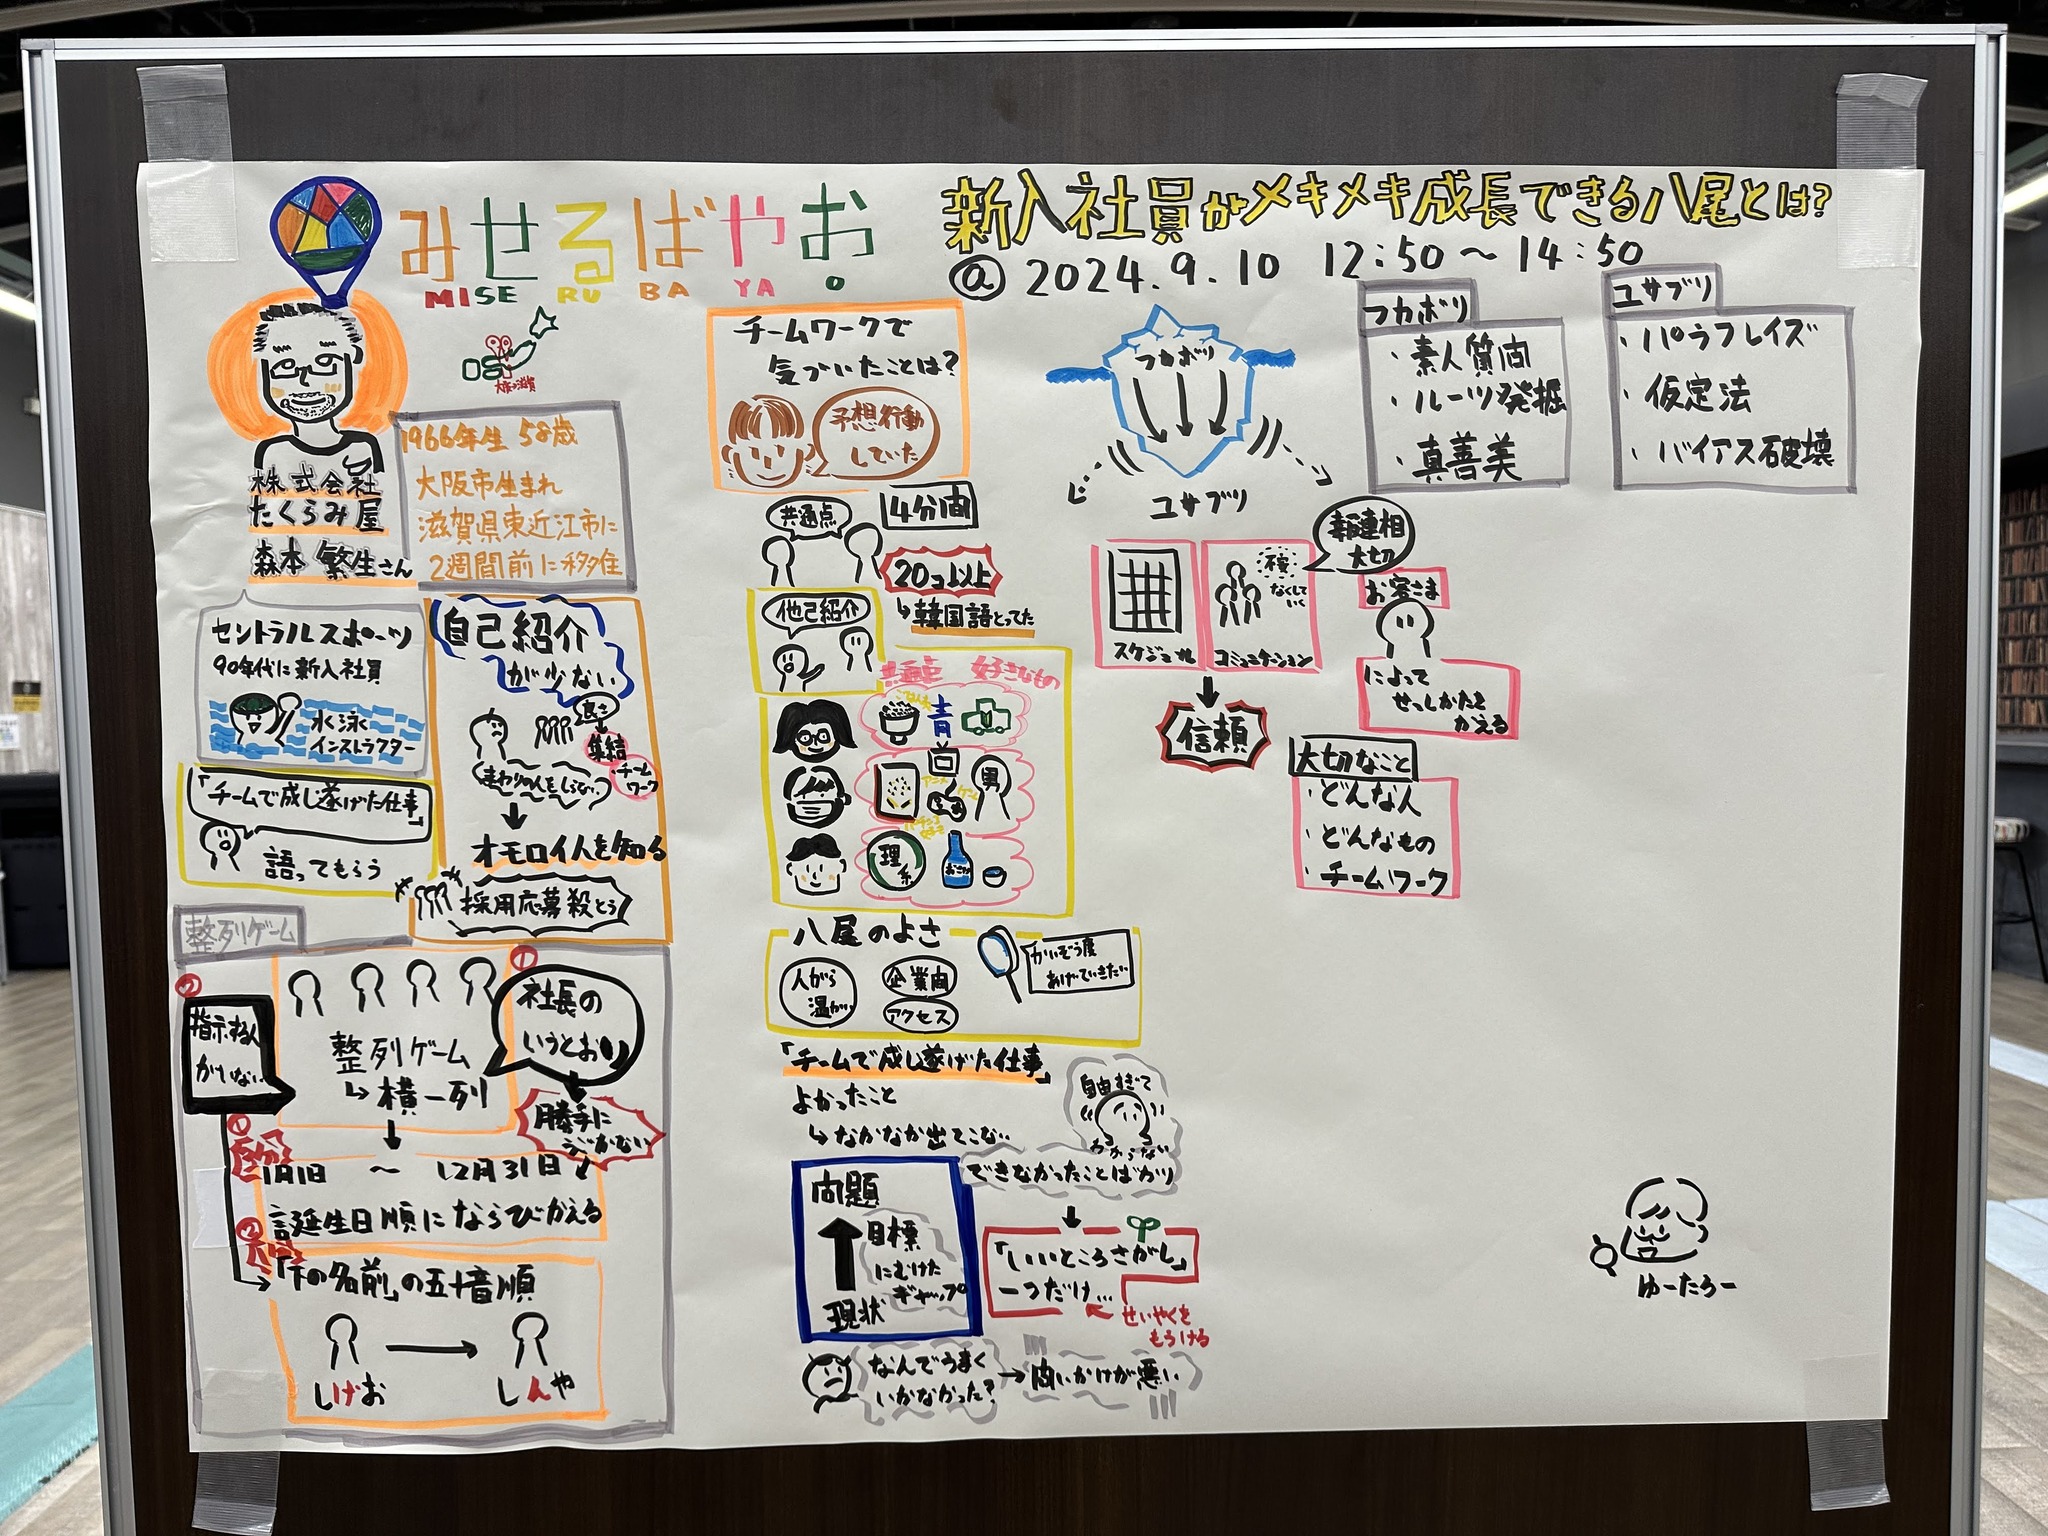 みせるばやお
MISERUBAYAO
新入社員がメキメキ成長できる八尾とは?
@ 2024.9.10 12:50～14:50
株式会社
たくらみ屋
森本 繁生さん
1966年生 58歳
大阪市生まれ
滋賀県東近江市に
2週間前に移住
セントラルスポーツ
90年代に新入社員
水泳
インストラクター
「チームで成し遂げた仕事」
語ってもらう
自己紹介
が少ない
良さ
集結
チーム
ワーク
まわりの人をしらない
オモロイ人を知る
採用応募殺とう
整列ゲーム
②
指示する人
がいない
整列ゲーム
↳横一列
①
社長の
いうとおり
勝手に
うごかない
①
1月1日 ～ 12月31日
誕生日順にならびかえる
②
「下の名前」の五十音順
しげお
しんや
チームワークで
気づいたことは?
予想行動
していた
共通点
4分間
20コ以上
↳韓国語とってた
他己紹介
共通点 好きなもの
ごはん
青
アニメ
ゲーム
男
理系
おさけ
八尾のよさ
人がら
温かい
企業間
アクセス
かいぞう度
あげていきたい
「チームで成し遂げた仕事」
よかったこと
↳なかなか出てこない
自由すぎて
わからない
できなかったことばかり
問題
目標
にむけた
ギャップ
現状
「いいところさがし」
一つだけ…
せいやくを
もうける
なんでうまく
いかなかった?
→問いかけが悪い
フカボリ
ユサブリ
フカボリ
・素人質問
・ルーツ発掘
・真善美
ユサブリ
・パラフレイズ
・仮定法
・バイアス破壊
スケジュール
不安
なくして
いく
コミュニケーション
報連相
大切
信頼
お客さま
によって
せっしかたを
かえる
大切なこと
・どんな人
・どんなもの
・チームワーク
ゆーたろー